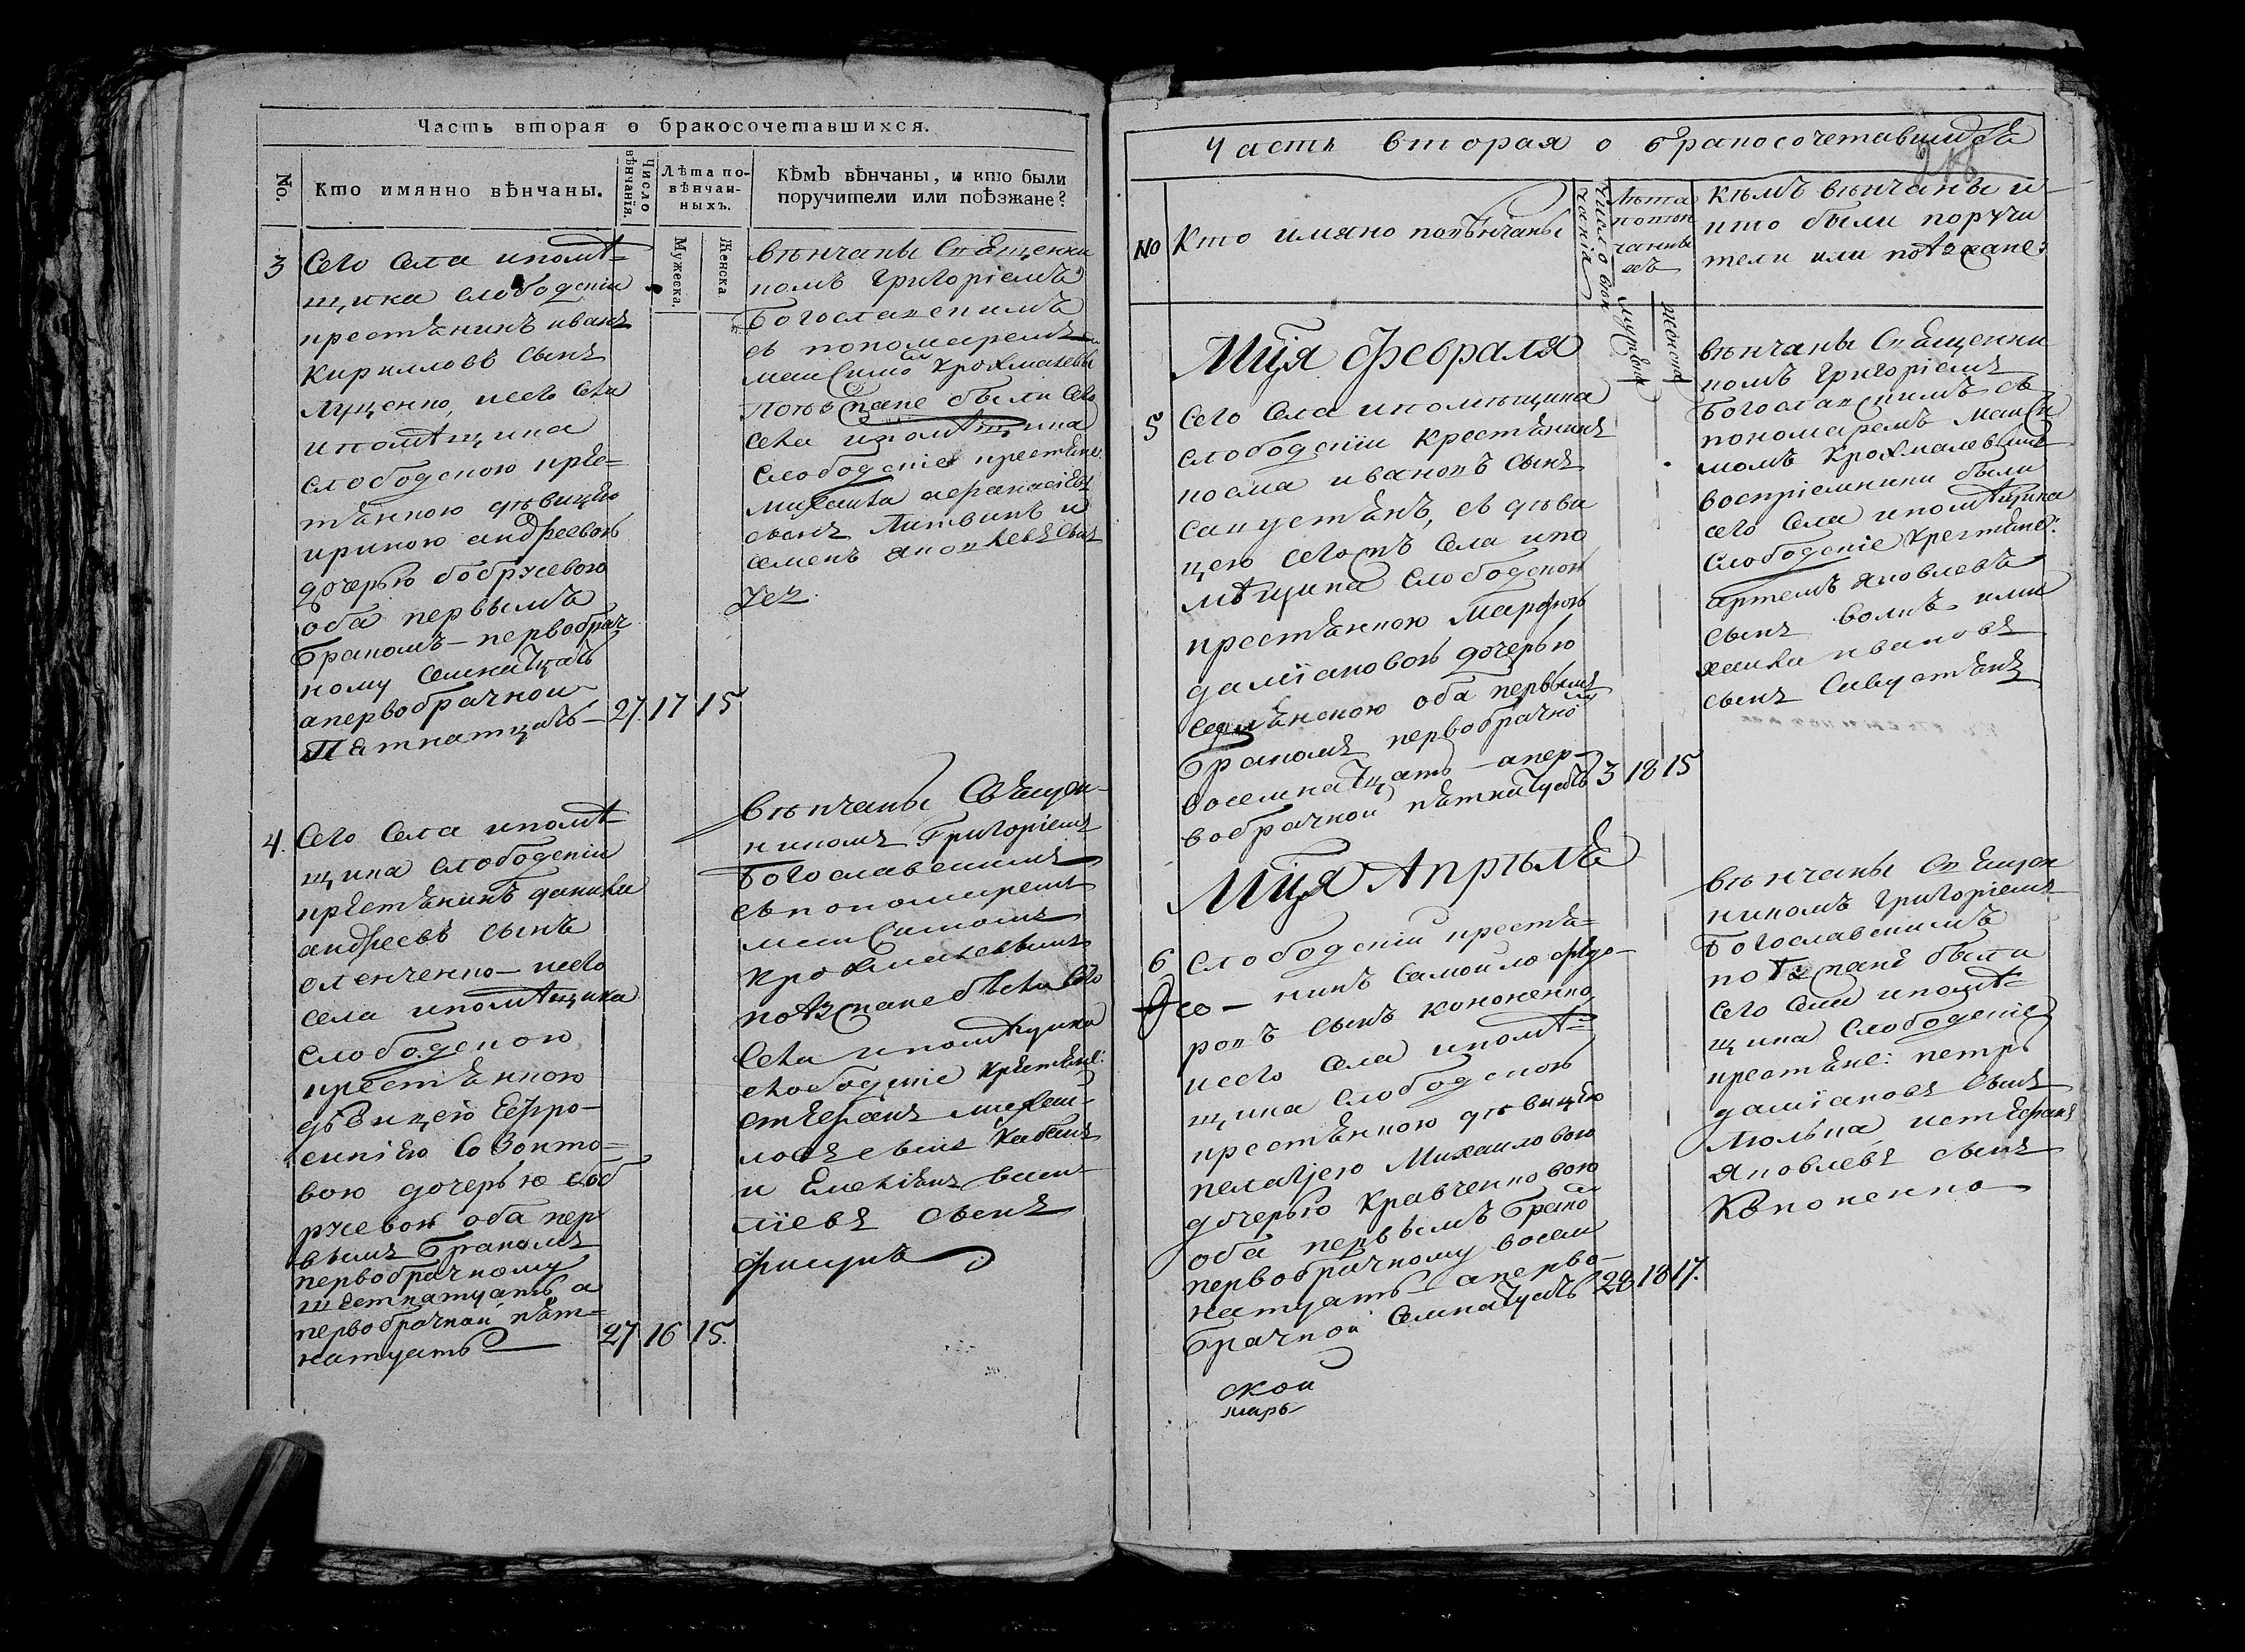 Часть вторая о бракосочетавшихся.
No.
Кто имянно вѣнчаны.
Число вѣнчанія.
Лѣта по-
вѣнчан-
ныхъ.
Мужеска.
Женска
Кѣмъ вѣнчаны, и кто были
поручители или поѣзжане?
3
Сего села и помѣ-
щика слободскіи
крестьянинъ иванъ
Кирилловъ сынъ
Луценко, и сего села
и помѣщика
слободского кре-
стьянкою дѣвицею
ириною андреевою
дочерью бобрусевою
оба первымъ
бракомъ - первобрач
ному семнатцать
а первобрачной
Пятнатцать - 27. 17 15
вѣнчаны Священни
комъ Григоріемъ
Богославскимъ
съ пономаремъ
Максимо Крохмалевы
Поѣзжане были сего
села и помѣщика
слободскіе крестьяне
михаила афанасіевъ
сынъ Литвинъ и
семенъ яковлевъ сынъ
4.
Сего села и помѣ-
щика слободскіи
крестьянинъ данила
андреевъ сынъ
оленченко - и сего
села и помѣщика
слободского
крестьянкою
дѣвицею Ефро-
синіею Созонто-
вою дочерью боб
русевою оба пер
вымъ бракомъ
первобрачному
шестнатцать а
первобрачной пят-
натцать 27 16 15.
вѣнчаны Священ-
никомъ Григоріемъ
Богославскимъ
съ пономаремъ
Максимомъ
Крохмалевымъ
поѣзжане были сего
села и помѣщика
слободскіе крестьяне:
стефанъ михаи-
ловъ сынъ Кабанъ
и Емеліянъ васи-
ліевъ сынъ
фисунъ
Часть вторая о бракосочетавшихся
No
Кто имяно повѣнчаны
число вѣн
чанія
Лѣта
повѣн
чанны
хъ
мужска
женска
Кѣмъ вѣнчаны и
кто были поручи
тели или поѣзжане:
Мця Февраля
5
Сего села и помѣщика
слободскіи Крестьянинъ
косма ивановъ сынъ
сапустянъ, съ дѣви
цею сегожъ села и по
мѣщика слободского
крестьянкою Марфою
даміановою дочерью
оба первымъ
бракомъ первобрачно му
восемнатцать - а пер-
вобрачной пятнатцать 3 18 15
вѣнчаны Священни
комъ Григоріемъ
Богославскимъ съ
пономаремъ Макси
момъ Крохмалевымъ
воспріемники были
сего села и помѣщика
слободскіе Крестьяне:
артемъ яковлевъ
сынъ волкъ и ми
хаила ивановъ
сынъ
Мця Апрѣля
6
слободскіи крестья-
нинъ Самоило федо-
ровъ сынъ кононенко
и сего села и помѣ-
щика слободского
крестьянкою дѣвицею
пелагіею Михаиловою
дочерью Кравченковою
оба первымъ брако мъ
первобрачному восем
натцать - а перво-
брачной семнатцать 28 18 17.
ской
марь
вѣнчаны Священ
никомъ Григоріемъ
Богославскимъ
поѣзжане были
сего села и помѣ-
щика слободскіе
крестьяне: петръ
даміановъ сынъ
Люлька и стефанъ
яковлевъ сынъ
Кононенко